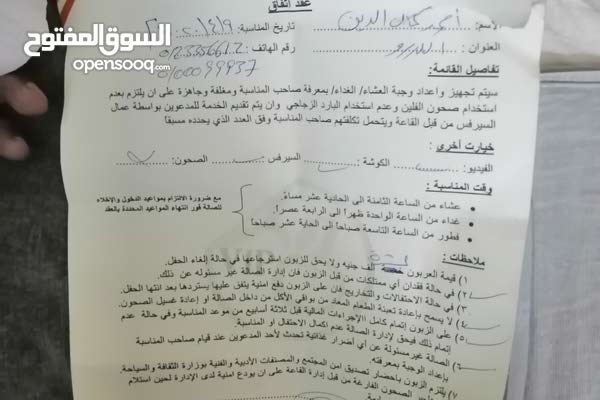 عقد اتفاق
السوق المفتوح
opensooq.com
الاسم: أحمد كمال الدين تاريخ المناسبة:
العنوان : رقم الهاتف:
تفاصيل القائمة:
سيتم تجهيز واعداد وجبة العشاء/ الغداء/ بمعرفة صاحب المناسبة ومغلفة وجاهزة على ان يلتزم بعدم
استخدام صحون الفلين وعدم استخدام البارد الزجاجي وان يتم تقديم الخدمة للمدعوين بواسطة عمال
السيرفس من قبل القاعة ويتحمل تكلفتهم صاحب المناسبة وفق العدد الذي يحدده مسبقاً
خيارت أخرى :
الفيديو: الكوشة: السيرفس: الصحون:
وقت المناسبة :
• عشاء من الساعة الثامنة الى الحادية عشر مساءً.
• غداء من الساعة الواحدة ظهراً الى الرابعة عصراً.
• فطور من الساعة التاسعة صباحاً الى الحاية عشر صباحاً
مع ضرورة الالتزام بمواعيد الدخول والإخلاء
للصالة فور انتهاء المواعيد المحددة بالعقد
ملاحظات :
١) قيمة العربون الف جنيه ولا يحق للزبون استرجاعها في حالة إلغاء الحفل.
٢) في حالة فقدان أي ممتلكات من قبل الزبون فان إدارة الصالة غير مسئوله عن ذلك.
٣) في حالة الاحتفالات والتخاريج فان على الزبون دفع امنية يتفق عليها يستردها بعد انتها الحفل.
٤) لا يسمح بإعادة تعبئة الطعام المعاد من بواقي الأكل من داخل الصالة او إعادة غسيل الصحون.
٥) على الزبون إتمام كامل الإجراءات المالية قبل ثلاثة أسابيع من موعد المناسبة وفي حالة عدم
إتمام ذلك فيحق لإدارة الصالة عدم اكمال الاحتفال او المناسبة.
٦) الصالة غيرمسئولة عن أي أضرار غذائية تحدث لأحد المدعوين عند قيام صاحب المناسبة
بإعداد الوجبة بمعرفته.
يلتزم الزبون باحضار تصديق امن المجتمع والمصنفات الأدبية والفنية بوزارة الثقافة والسياحة.
الصحون الفارغة من قبل إدارة القاعة على ان يودع امنية لدى الإدارة لحين استلام